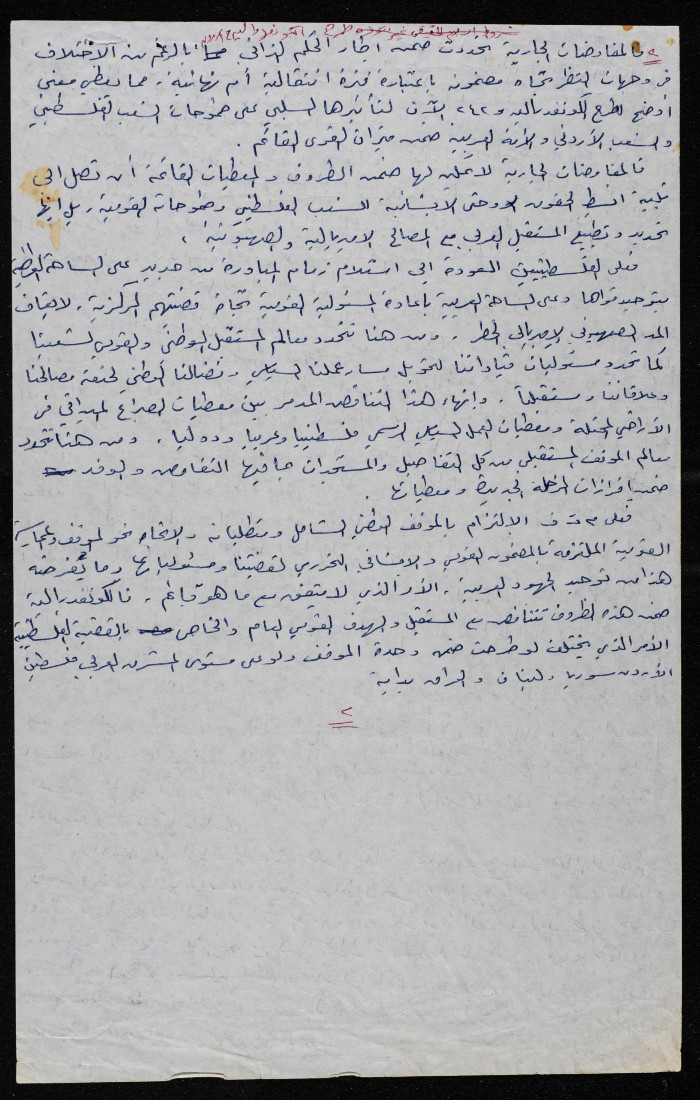 فالمفاوضات الجارية تحددت ضمن اطار الحكم الذاتي بالرغم من الاختلاف
في وجهات النظر تجاه مضمونه باعتباره فترة انتقالية أم نهائية، مما يعطي معنى
أوضح لطرح الكونفدرالية و ٢٤٢ الآن لتأثيرها السلبي على طموحات الشعب الفلسطيني
والشعب الأردني والأمة العربية ضمن ميزان القوى القائم.
فالمفاوضات الجارية لا يمكن لها ضمن الظروف والمعطيات القائمة أن تصل الى
تلبية ابسط الحقوق وحتى الانسانية للشعب الفلسطيني وطموحاته القومية، بل انها
تحديد وتطبيع المستقبل العربي مع المصالح الامبريالية والصهيونية،
فعلى الفلسطينيين العودة الى استلام زمام المبادرة من جديد على الساحة الوطنية
بتوحيد قواها وعلى الساحة العربية باعادة المسئولية القومية تجاه قضيتهم المركزية، لايقاف
المد الصهيوني الامبريالي الخطر، ومن هنا تتحدد معالم المستقبل الوطني والقومي لشعبنا
كما تحدد مسئوليات قياداتنا لتحويل مسار عملنا السياسي ونضالنا الوطني لخدمة مصالحنا
وعلاقاتنا ومستقبلنا، وانهاء هذا التناقض المدمر بين معطيات الصراع الميداني في
الأراضي المحتلة ومعطيات العمل السياسي الرسمي فلسطينيا وعربيا ودوليا، ومن هنا تتحدد
معالم الموقف المستقبلي من كل التفاصيل والمستجدات بما فيها التفاوض والوفد
ضمن افرازات المرحلة الجديدة ومعطياتها.
فعلى م ت ف الالتزام بالموقف الوطني الشامل ومتطلباته والاتجاه نحو الموقف
القومية الملتزمة بالمضمون القومي والانساني التحرري لقضيتنا ومسئولياتها وما يفرضه
هذا من توحيد الجهود العربية، الأمر الذي لا يتفق مع ما هو قائم، فالكونفدرالية
ضمن هذه الظروف تتناقض مع المستقبل والهدف القومي العام والخاص بالقضية الفلسطينية
الأمر الذي يختلف لو طرحت ضمن وحدة الموقف ولو على مستوى المشرق العربي فلسطين
الأردن سوريا ولبنان والعراق بداية
٢